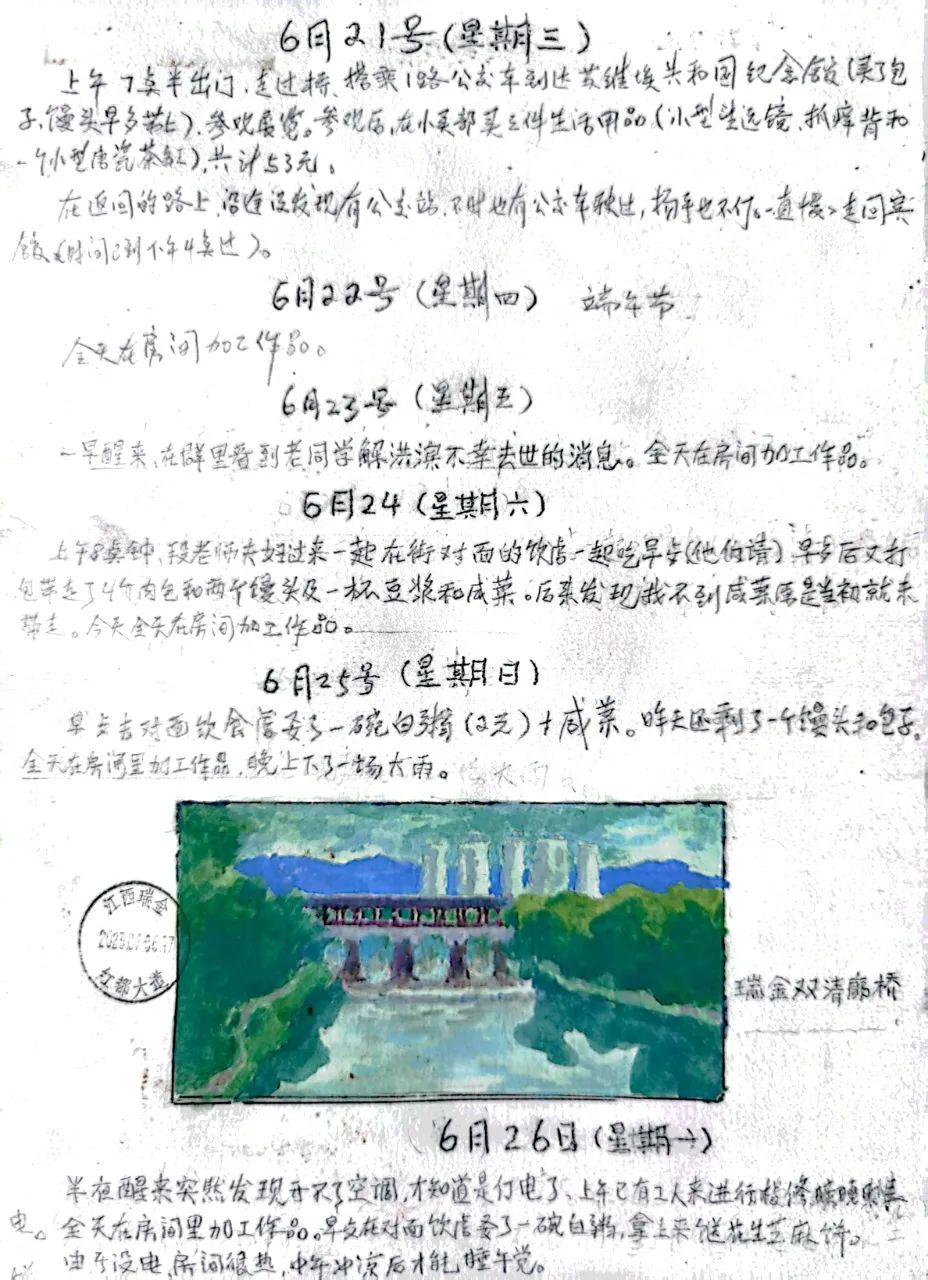 6月21号(星期三)
上午7点半出门,走过桥,搭乘18路公交车到达苏维埃共和国纪念馆(买了包
子,馒头早多带上),参观展览。参观后,在小卖部买三件生活用品(小型望远镜、抓痒背和
一个小型唐瓷茶缸),共计53元。
在返回的路上,沿途没发现有公交站,不时也有公交车驶过,扬手也不停。一直慢慢走回宾
馆(时间已到下午4点过)。
6月22号(星期四) 端午节
全天在房间加工作品。
6月23号(星期五)
一早醒来,在群里看到老同学解洪滨不幸去世的消息。全天在房间加工作品。
6月24(星期六)
上午8点钟,段老师夫妇过来一起在街对面的饮店一起吃早点(他们请)早点后又打
包带走了4个肉包和两个馒头及一杯豆浆和咸菜。后来发现找不到咸菜原是当初就未
带走。今天全天在房间加工作品。
6月25号(星期日)
早点去对面饮食店要了一碗白粥(2元)+咸菜。昨天还剩了一个馒头和包子,
全天在房间里加工作品,晚上下了一场大雨。
江西瑞金
2023.07.06.17
红都大道
瑞金双清廊桥
6月26日(星期一)
半夜醒来突然发现开不了空调,才知道是停电了、上午已有工人来进行检修
电。全天在房间里加工作品。早点在对面饮店要了一碗白粥,拿上来个送花生芝麻饼。
由于没电,房间很热,中午冲凉后才能睡午觉。